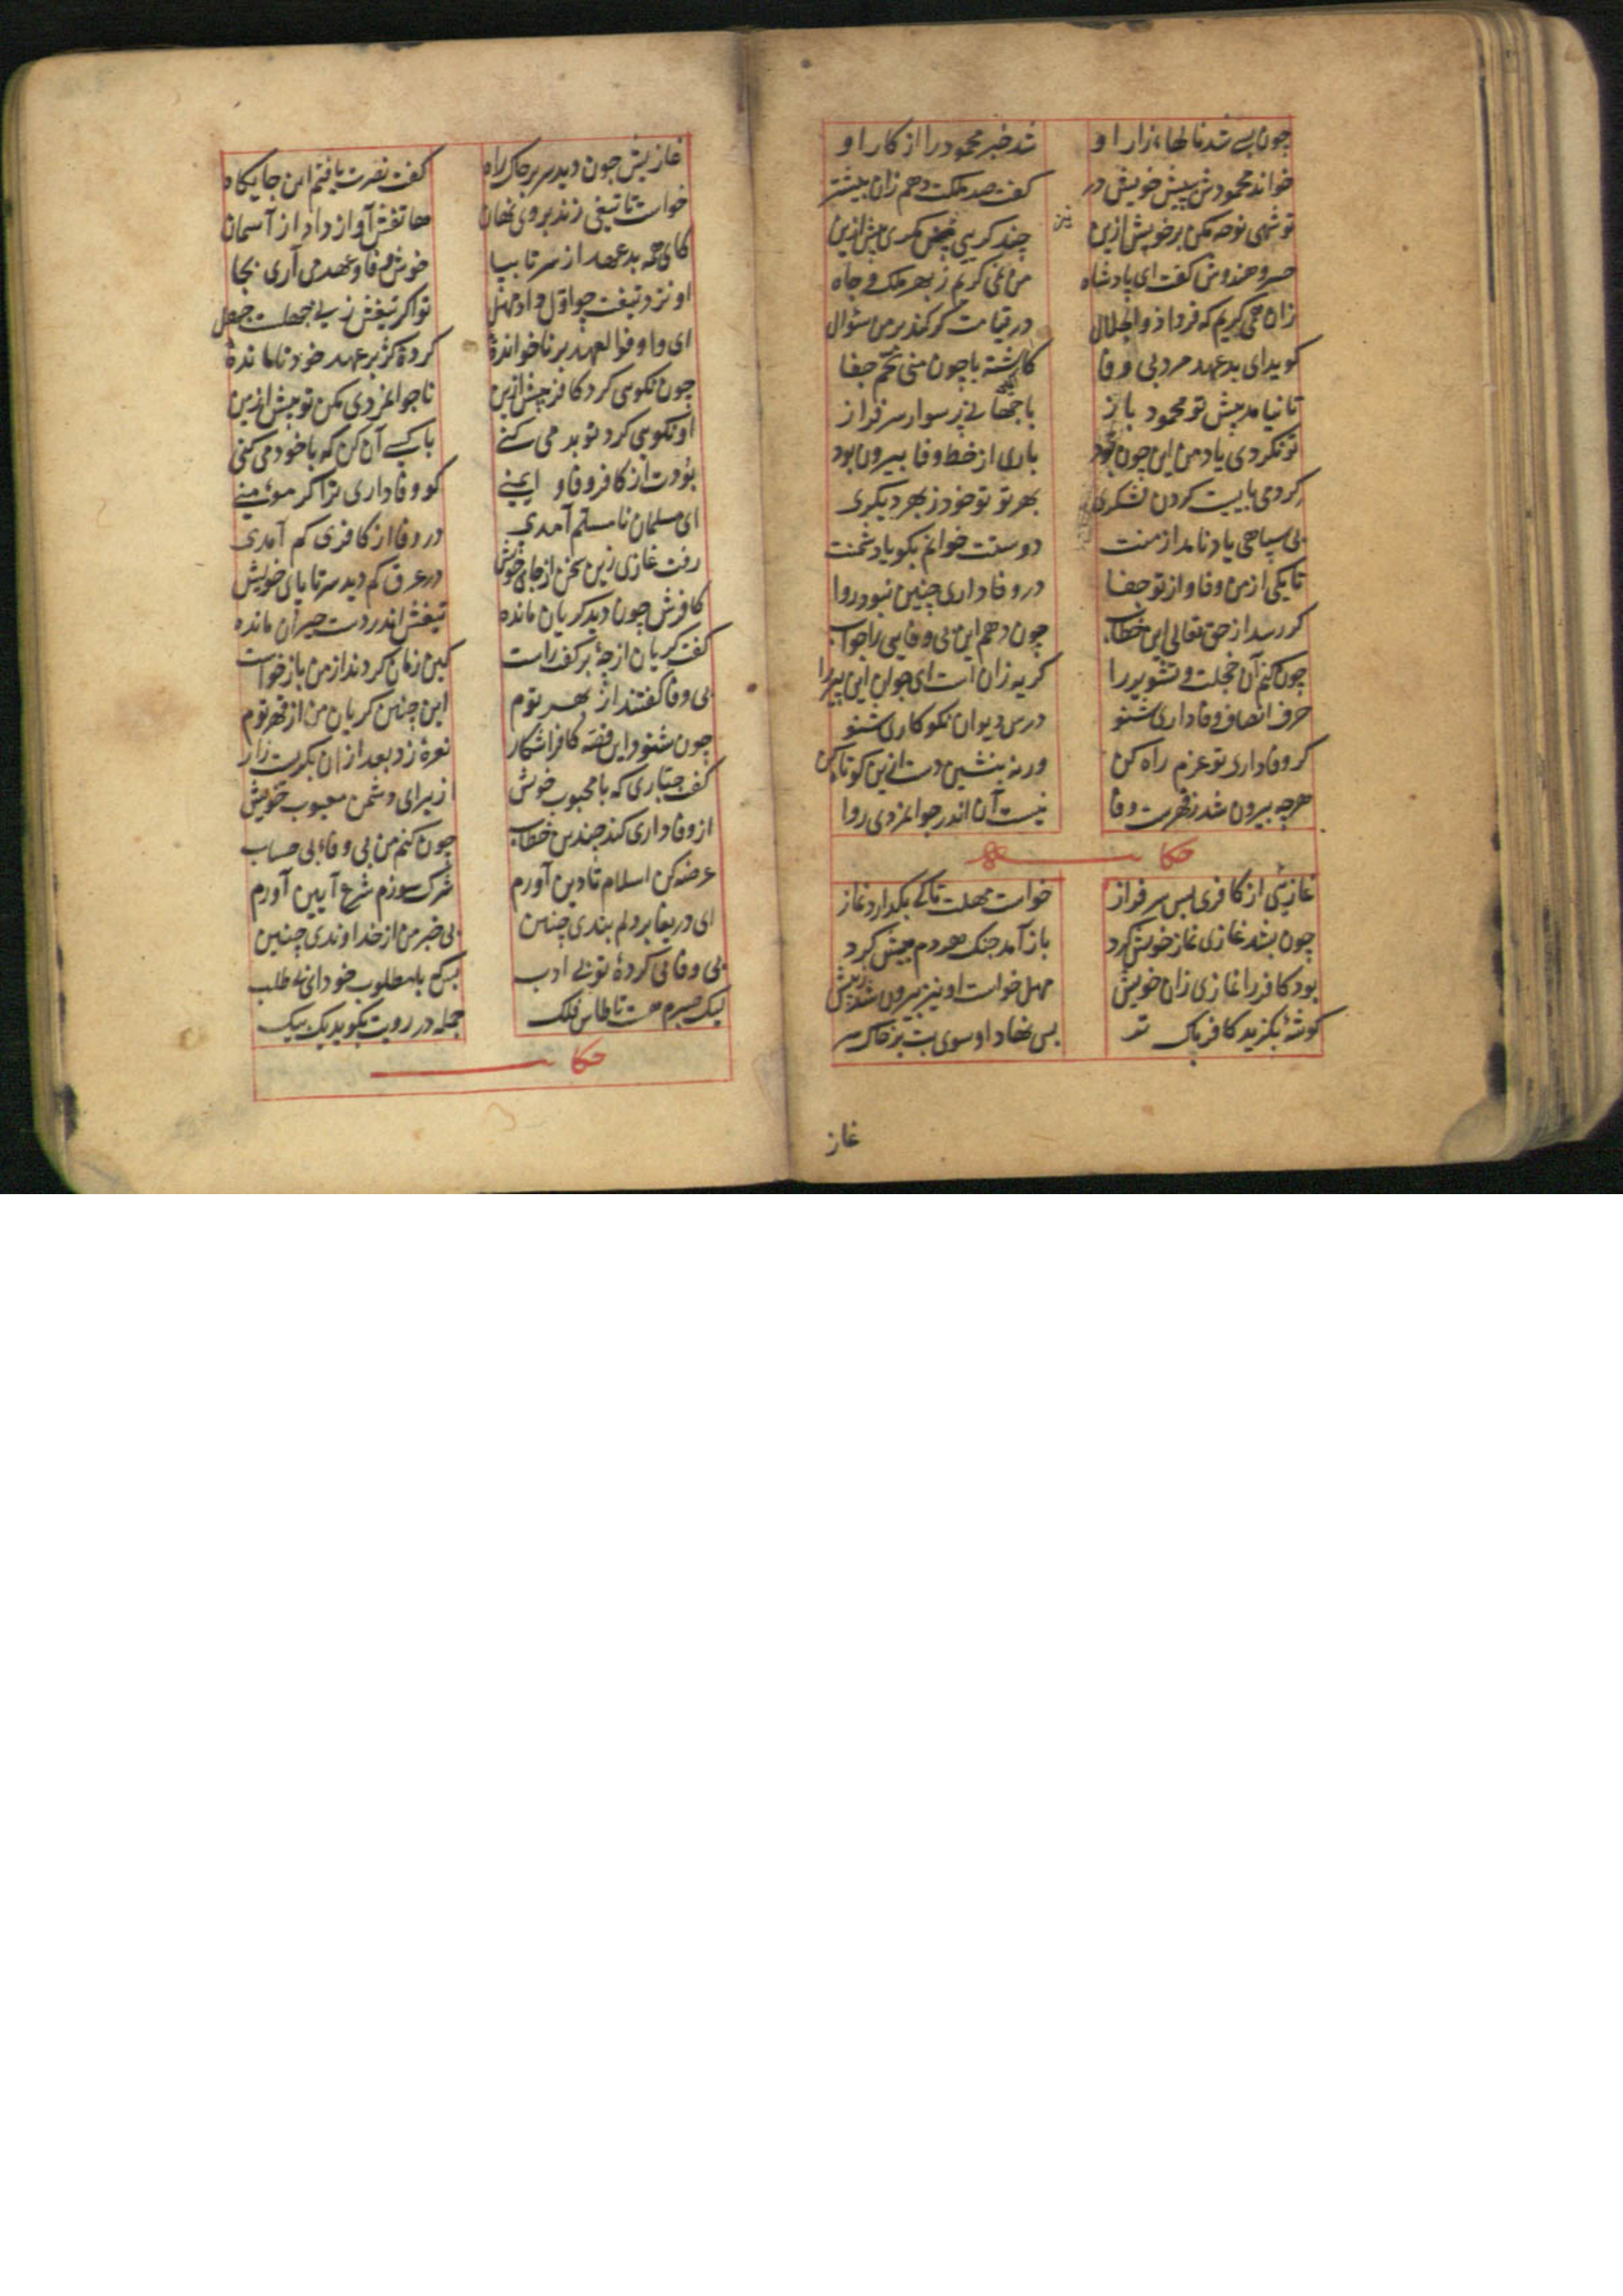 چون بسی شد نالهاء زار او
شد خبر محمود را از کار او
خواند محمودش به پیش خویش در
کفت صد ملکت دهم زان بیشتر
تو شهی نوحه مکن بر خویش ازین
چند کریی نیز مکری بیش ازین
خسرو هندوش کفت ای پادشاه
من نمی کریم ز بهر ملک و جاه
زان همی کریم که فردا ذو الجلال
در قیامت کر کند بر من سؤال
کوید ای بد عهد مرد بی وفا
کاشته با چون منی تخم جفا
تا نیامد پیش تو محمود باز
با جهانی پر سوار سرفراز
تو نکردی یاد من این چون بود
باری از خط وفا بیرون بود
کردمی بایست کردن لشکری
بهر تو تو خود ز بهر دیکری
بی سپاهی یاد نامد از منت
دوستت خوانم بکو یا دشمنت
تا یکی از من وفا و از تو جفا
در وفاداری چنین نبود روا
کر رسد از حق تعالی این خطاب
چون دهم این بی وفایی را جواب
چون کنم آن خجلت و تشویر را
کریه زان است ای جوان این پیر را
حرف انصاف و وفاداری شنو
درس دیوان نکو کاری شنو
کر وفاداری تو عزم راه کن
ورنه بنشین دست ازین کوتاه کن
هرچه بیرون شد ز فهرست وفا
نیست آن اندر جوانمردی روا
حکا
غازیئی از کافری بس سرفراز
خواست مهلت تا که بکذارد نماز
چون بشد غازی نماز خویش کرد
باز آمد جنک هر دم بیش کرد
بود کافر را نمازی زان خویش
مهل خواست او نیز بیرون شد ز پیش
کوشهٔ بکزید کافر پاک تر
پس نهاد او سوی بت بر خاک سر
غاز
غازیش چون دید سر بر خاک راه
کفت نصرت یافتم این جایکاه
خواست تا تیغی زند بر وی نهان
هاتفش آواز داد از آسمان
کای همه بد عهد از سر تا بپا
خوش وفا و عهد می آری بجا
او نزد تیغت چو اول داد مهل
تو اکر تیغش زنی جهلست جهل
ای و اوفوا العهد بر ناخواندهٔ
کردهٔ کژ بر عهد خود نا ماندهٔ
چون نکویی کرد کافر پیش ازین
ناجوانمردی مکن تو بیش ازین
او نکویی کرد تو بد می کنی
با کسی آن کن که با خود می کنی
بودت از کافر وفا و ایمنی
کو وفاداری ترا کر مؤمنی
ای مسلمان نا مسلم آمدی
در وفا از کافری کم آمدی
رفت غازی زین سخن از جای خویش
در عرق کم دید سر تا پای خویش
کافرش چون دید کریان مانده
تیغش اندر دست حیران مانده
کفت کریان از چهٔ بر کفت راست
کین زمان کردند از من باز خواست
بی وفا کفتند از بهر توم
این چنین کریان من از قهر توم
چون شنود این قصه کافر آشکار
نعرهٔ زد بعد از آن بکریست زار
کفت جباری که با محبوب خویش
از برای دشمن معیوب خویش
از وفاداری کند چندین خطاب
چون کنم من بی وفائی بی حساب
عرضه کن اسلام تا دین آورم
شرک سوزم شرع آیین آورم
ای دریغا بر دلم بندی چنین
بی خبر من از خداوندی چنین
بی وفائی کردهٔ تو بی ادب
بس که با مطلوب خود ای بی طلب
لیک صبرم هست تا طاس فلک
جمله در رویت بکوید یک بیک
حکا